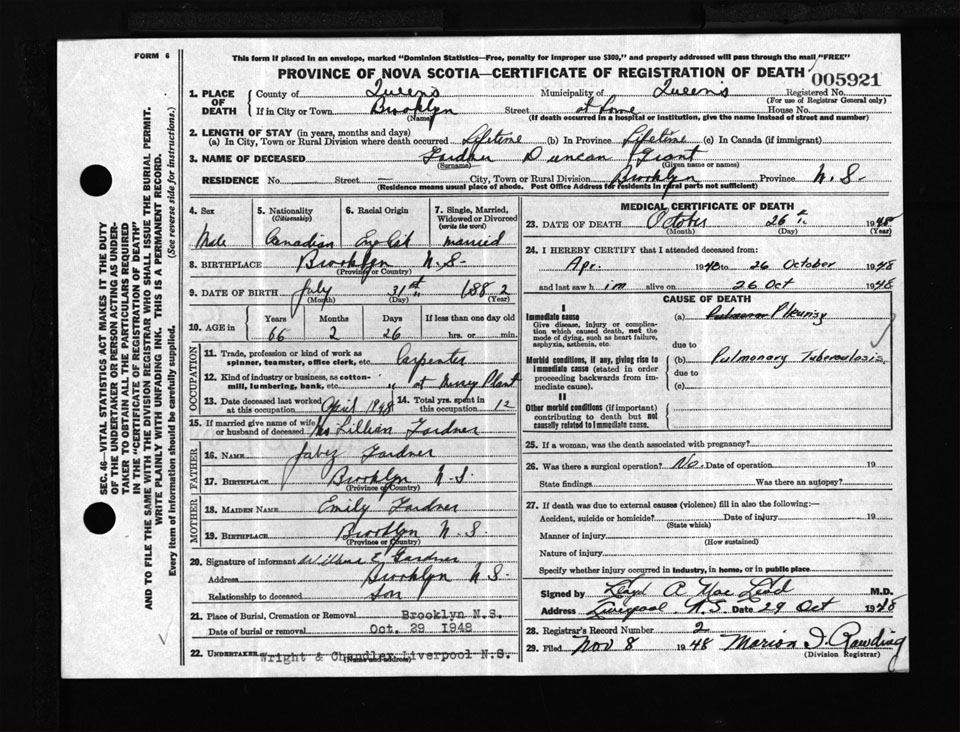 FORM 6
This form if placed in an envelope, marked "Dominion Statistics—Free, penalty for improper use $300," and properly addressed will pass through the mail "FREE"
PROVINCE OF NOVA SCOTIA—CERTIFICATE OF REGISTRATION OF DEATH 005921
1. PLACE OF DEATH County of Queens Municipality of Queens Registered No.
(For use of Registrar General only)
If in City or Town Brooklyn Street at home House No.
(Name) (If death occurred in a hospital or institution, give the name instead of street and number)
2. LENGTH OF STAY (in years, months and days)
(a) In City, Town or Rural Division where death occurred Lifetime (b) In Province Lifetime (c) In Canada (if immigrant)
3. NAME OF DECEASED Gardner Duncan Grant
(Surname) (Given name or names)
RESIDENCE No. Street — City, Town or Rural Division Brooklyn Province N.S.
(Residence means usual place of abode. Post Office Address for residents in rural parts not sufficient)
4. Sex 5. Nationality (Citizenship) 6. Racial Origin 7. Single, Married, Widowed or Divorced (write the word)
Male Canadian married
8. BIRTHPLACE Brooklyn N.S.
(Province or Country)
9. DATE OF BIRTH July 31st 1882
(Month) (Day) (Year)
10. AGE in Years Months Days If less than one day old
66 2 26 hrs. or min.
OCCUPATION
11. Trade, profession or kind of work as spinner, teamster, office clerk, etc. Carpenter
12. Kind of industry or business, as cotton-mill, lumbering, bank, etc. " at Mersey Plant
13. Date deceased last worked at this occupation April 1948 14. Total yrs. spent in this occupation 12
15. If married give name of wife or husband of deceased Mrs Lillian Gardner
FATHER
16. NAME Jabez Gardner
17. BIRTHPLACE Brooklyn N.S.
(Province or Country)
MOTHER
18. MAIDEN NAME Emily Gardner
19. BIRTHPLACE Brooklyn N.S.
(Province or Country)
20. Signature of informant E Gardner
Address Brooklyn N.S.
Relationship to deceased Son
21. Place of Burial, Cremation or Removal Brooklyn N.S.
Date of burial or removal Oct. 29 1948
22. UNDERTAKER Wright & Chandler Liverpool N.S.
(Name and address)
MEDICAL CERTIFICATE OF DEATH
23. DATE OF DEATH October 26th 1948
(Month) (Day) (Year)
24. I HEREBY CERTIFY that I attended deceased from:
Apr. 1948 to 26 October 1948
and last saw him alive on 26 Oct 1948
CAUSE OF DEATH
I
Immediate cause
Give disease, injury or complication which caused death, not the mode of dying, such as heart failure, asphyxia, asthenia, etc.
(a) Pulmonar Pleurisy
due to
Morbid conditions, if any, giving rise to immediate cause (stated in order proceeding backwards from immediate cause).
(b) Pulmonary Tuberculosis
due to
(c)
II
Other morbid conditions (if important) contributing to death but not causally related to immediate cause.
25. If a woman, was the death associated with pregnancy?
26. Was there a surgical operation? No. Date of operation 19
State findings Was there an autopsy?
27. If death was due to external causes (violence) fill in also the following:—
Accident, suicide or homicide? Date of injury 19
(State which)
Manner of injury
(How sustained)
Nature of injury
Specify whether injury occurred in industry, in home, or in public place
Signed by Lloyd A MacLeod M.D.
Address Liverpool N.S. Date 29 Oct 1948
28. Registrar's Record Number 2
29. Filed Nov 8 1948 Marion I. Rawding
(Division Registrar)
SEC. 46—VITAL STATISTICS ACT MAKES IT THE DUTY
OF THE UNDERTAKER OR PERSON ACTING AS UNDER-
TAKER TO OBTAIN ALL THE PARTICULARS REQUIRED
IN THE "CERTIFICATE OF REGISTRATION OF DEATH"
AND TO FILE THE SAME WITH THE DIVISION REGISTRAR WHO SHALL ISSUE THE BURIAL PERMIT.
WRITE PLAINLY WITH UNFADING INK. THIS IS A PERMANENT RECORD.
Every item of information should be carefully supplied. (See reverse side for instructions.)